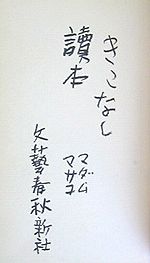 きこなし
讀本
マダム
マサコ
文藝春秋新社